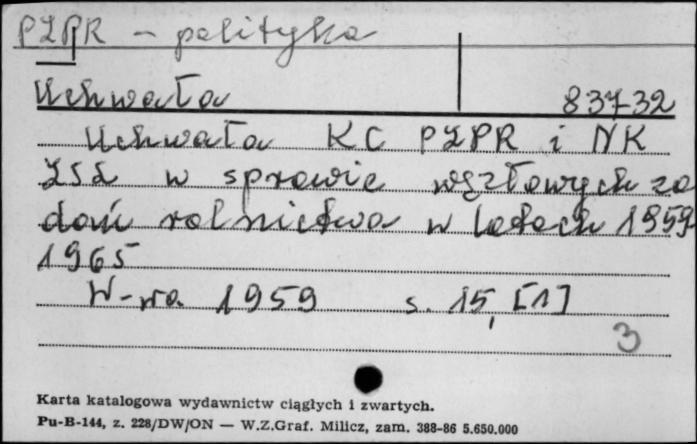 PZPR - polityka
Uchwała 83732
Uchwała KC PZPR i NK
ZSL w sprawie węzłowych za
dań rolnictwa w latach 1959-
1965
W-wa 1959 s. 15, [1]
3
Karta katalogowa wydawnictw ciągłych i zwartych.
Pu-B-144, z. 228/DW/ON — W.Z.Graf. Milicz, zam. 388-86 5.650.000